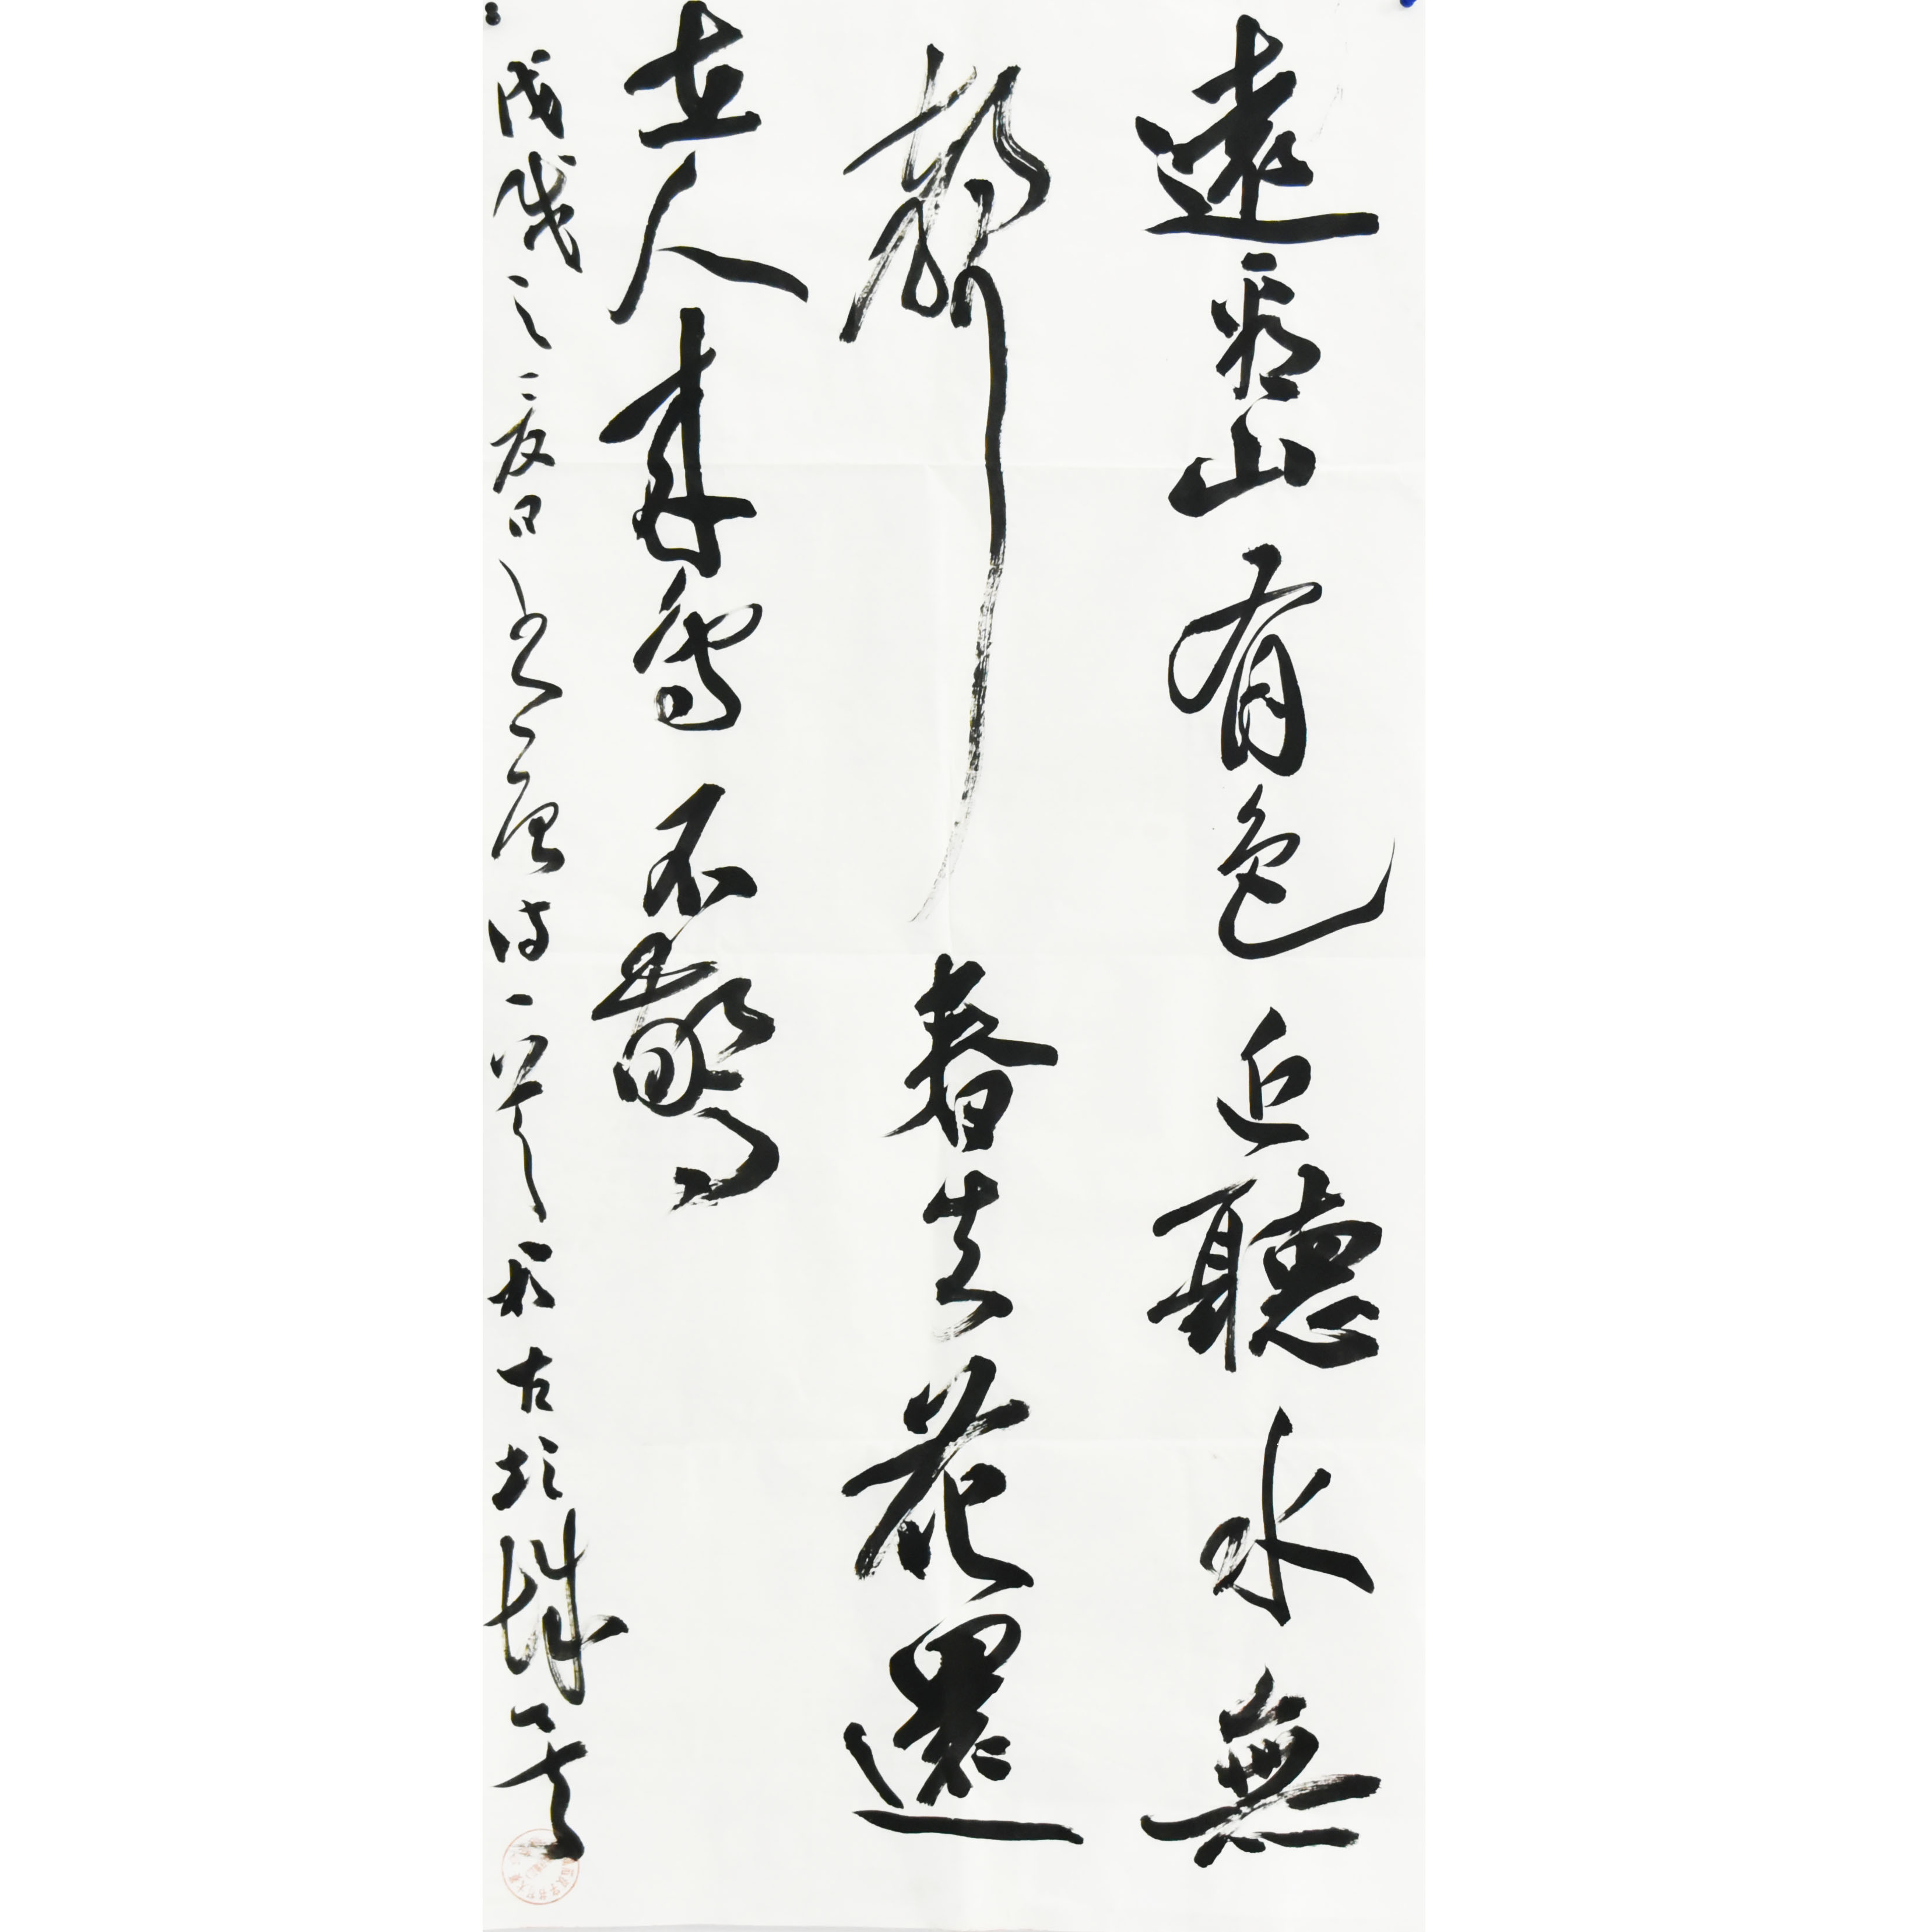 遠看山有色近聽水無
聲春去花還
在人來鳥不驚
戊戌之夏日書唐詩一首